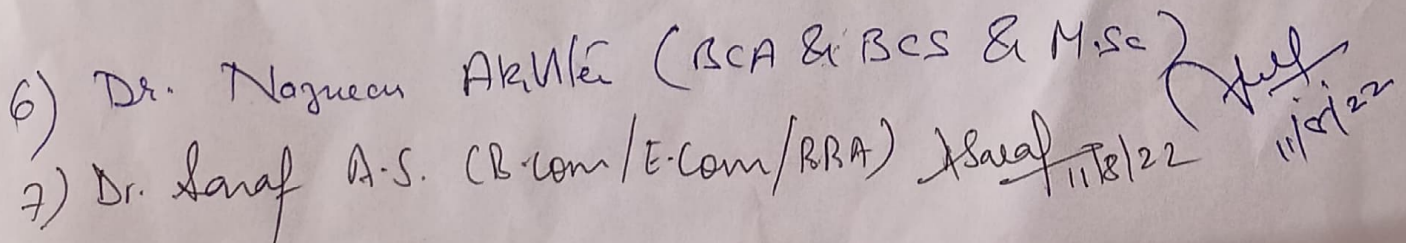 6) Dr. Nazneen (BCA & BCS & M.Sc) 11/8/22
7) Dr. Saraf A.S. (B.com/E.Com/BBA) ASaraf 11/8/22